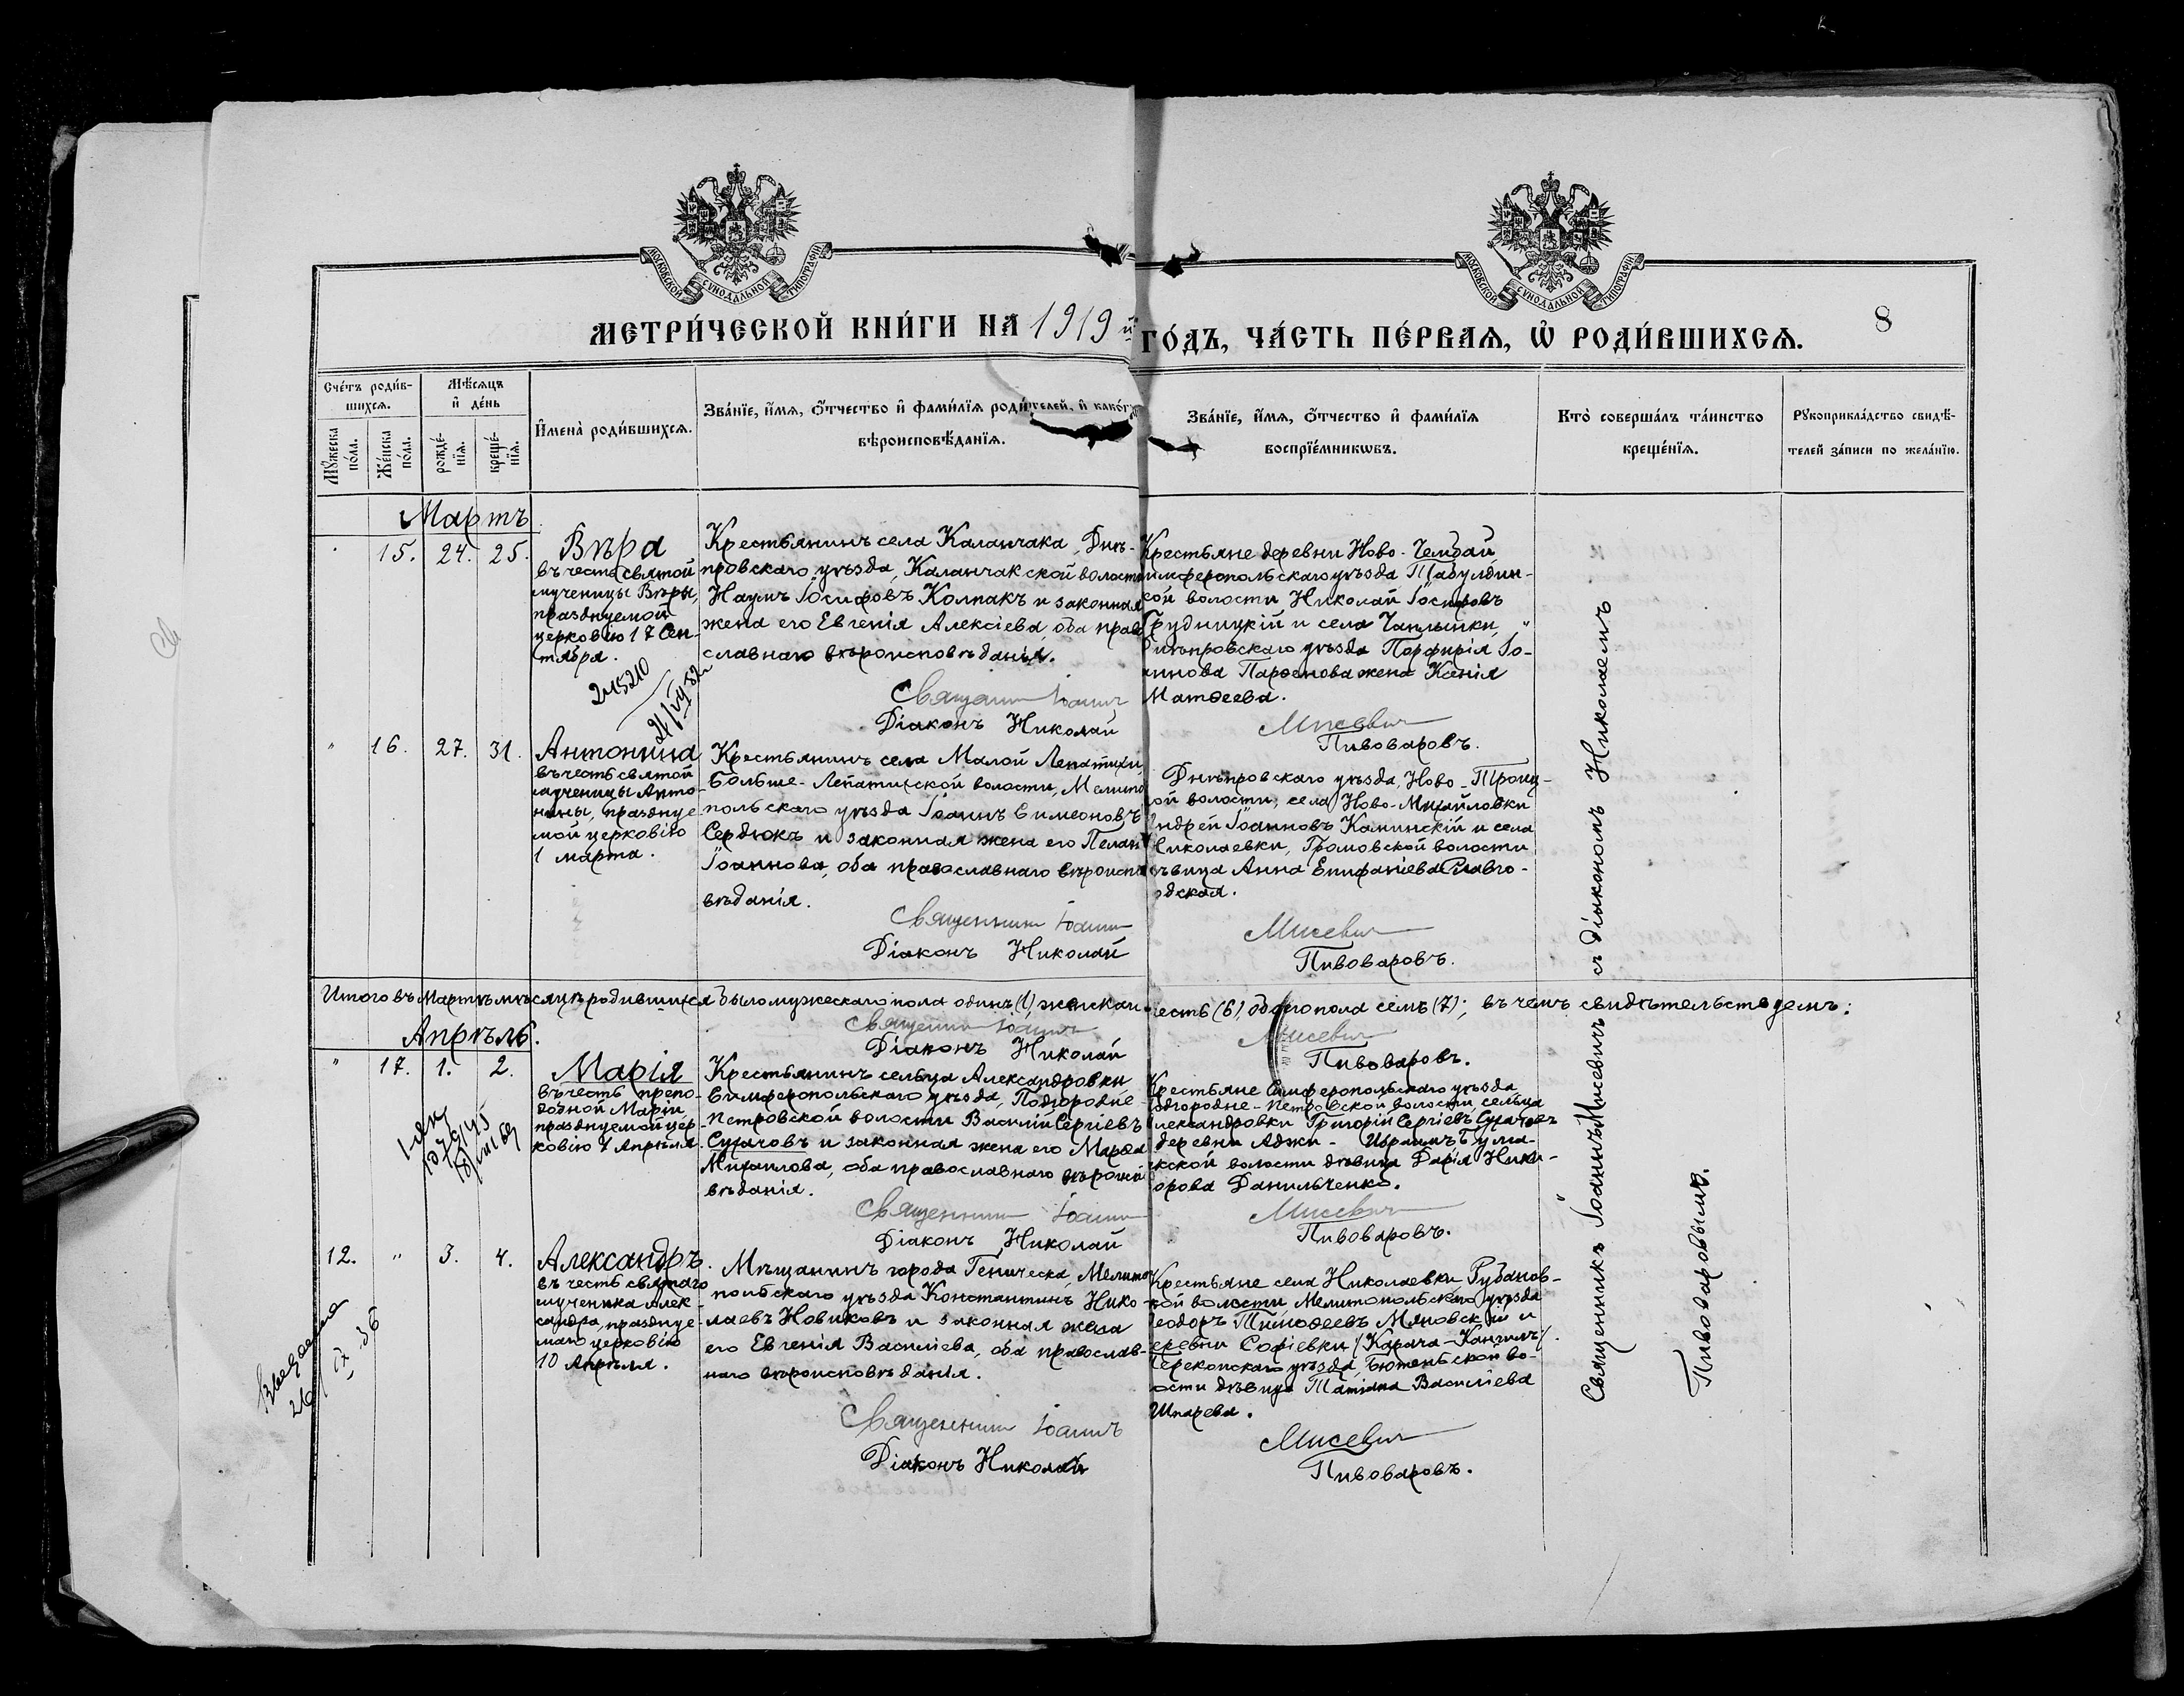 МОСКОВСКОЙ СѴНОДАЛЬНОЙ ТИПОГРАФІИ
МОСКОВСКОЙ СѴНОДАЛЬНОЙ ТИПОГРАФІИ
8
МЕТРИ́ЧЕСКОЙ КНИ́ГИ НА 1919й ГО́ДЪ, ЧА́СТЬ ПЕ́РВАЯ, Ѽ РОДИ́ВШИХСЯ.
Сче́тъ роди́в-
шихся.
Мѣсяцъ
и де́нь
Мꙋжеска
по́ла.
Же́нска
по́ла.
рожде́-
нїя.
креще́-
нїя.
И҆мена̀ роди́вшихся.
Зва́нїе, и҆́мя, ѻ҆́тчество и҆ фами́лїя роди́телей, и҆ како́гѡ
вѣроисповѣ́данїя.
Зва́нїе, и҆́мя, ѻ҆́тчество и҆ фами́лїя
воспрїе́мникѡвъ.
Кто̀ соверша́лъ та́инство
креще́нїя.
Рꙋкоприкла́дство свидѣ́-
телей за́писи по жела́нїю.
Мартъ
15. 24. 25.
Вѣра
въ честь святой
мученицы Вѣры,
празднуемой
церковію 17 Сен-
тября.
215210
Крестьянинъ села Каланчака, Днѣ-
провскаго уѣзда, Каланчакской волости
Наумъ Іосифовъ Колпакъ и законная
жена его Евгенія Алексіева, оба право
славнаго вѣроисповѣданія.
Священник Іоанн
Діаконъ Николай
Крестьяне деревни Ново-Чембай
имферопольскаго уѣзда Табулдин-
кой волости Николай Іосифовъ
Грудницкій и села Чаплынки,
нѣпровскаго уѣзда Порфирія Іо-
аннова Парѳенова жена Ксенія
Матѳеева.
Мисевич
Пивоваровъ.
" 16. 27. 31.
Антонина
въ честь святой
мученицы Анто-
нины, праздnuе-
мой церковію
1 марта.
Крестьянинъ села Малой Лепатихи,
Больше-Лепатихской волости, Мелито
польскаго уѣзда Іоаннъ Симеоновъ
Сердюкъ и законная жена его Пелагі
Іоаннова, оба православнаго вѣроиспо
вѣданія.
Священник Іоанн
Діаконъ Николай
Днѣпровскаго уѣзда, Ново-Троиц-
ой волости, села Ново-Михайловки
Андрей Іоанновъ Каминскій и села
Николаевки, Громовской волости
ѣвица Анна Епифаніева Славго-
одская.
Мисевич
Пивоваровъ.
Итого въ Мартѣ мѣсяцѣ родившихся было мужескаго пола одинъ (1), женскаго шесть (6), обоего пола семь (7); въ чемъ свидѣтельствуемъ:
Священник Іоанн Мисевич
Діаконъ Николай Пивоваровъ.
Апрѣль.
" 17. 1. 2.
Марія
въ честь препо-
добной Маріи
празднуемой цер-
ковію 1 Апрѣля.
Крестьянинъ сельца Александровки
Симферопольскаго уѣзда, Подгородне-
Петровской волости Василій Сергіевъ
Сухачовъ и законная жена его Марѳа
Михаилова, оба православнаго вѣроиспо
вѣданія.
Священник Іоанн
Діаконъ Николай
Крестьяне Симферопольскаго уѣзда
Подгородне-Петровской волости, сельца
Александровки Григорій Сергіевъ Сухачовъ
деревни Аджи-Ибраимъ Тума-
кской волости дѣвица Дарія Ники-
форова Данильченко.
Мисевич
Пивоваровъ.
12. " 3. 4.
Александръ.
въ честь святаго
мученика Алек-
сандра, праздnuе-
маго церковію
10 Апрѣля.
Мѣщанинъ города Геническа, Мелито
польскаго уѣзда Константинъ Нико-
лаевъ Новиковъ и законная жена
его Евгенія Василіева, оба православ-
наго вѣроисповѣданія.
Священник Іоаннъ
Діаконъ Николай
Крестьяне села Николаевки Рубанов-
кой волости, Мелитопольскаго уѣзда
Ѳеодоръ Тимоѳеевъ Мяновскій и
еревни Софіевки /Карача-Кангилъ/.
Перекопскаго уѣзда, Бютеньской во-
ости дѣвица Татіана Василіева
Шпарева.
Мисевич
Пивоваровъ.
Священникъ Іоаннъ Мисевичъ съ діакономъ Николаемъ
Пивоваровымъ.